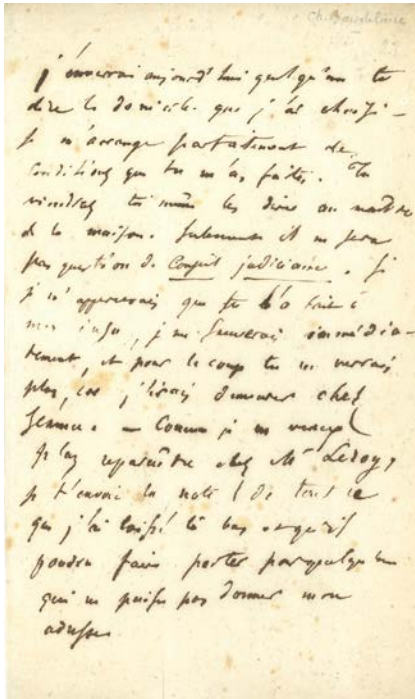 Ch. Baudelaire
j'enverrai aujourd'hui quelqu'un te
dire le domicile que j'ai choisi —
je m'arrange parfaitement des
conditions que tu m'as faites. Tu
viendras toi même les dire au maître
de la maison. Seulement il ne sera
pas question de Conseil judiciaire. Si
je m'appercevais que tu l'as fait à
mon insu, je me sauverais immédia-
tement, et pour le coup tu ne me verrais
plus, car j'irais demeurer chez
Jeanne. — Comme je ne veux
plus reparaître chez Mr Leroy,
je t'envoie la note de tout ce
que j'ai laissé là bas et qu'il
faudra faire porter par quelqu'un
qui ne puisse pas donner mon
adresse